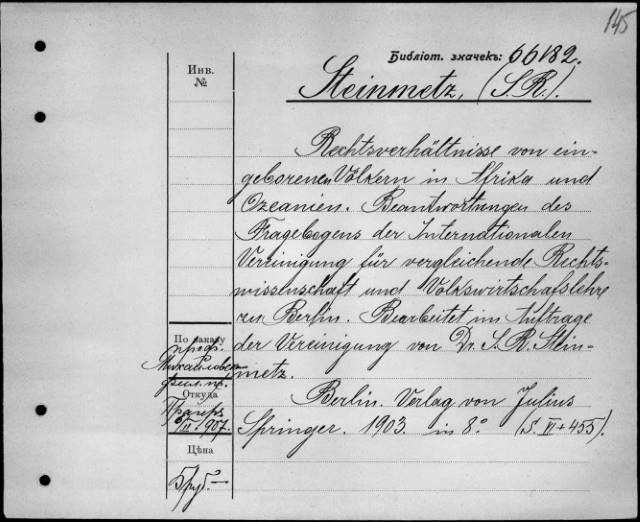 145
Библіот. значекъ: 66182.
Инв.
№
Steinmetz, (S. R.).
Rechtsverhältnisse von ein-
geborenen Völkern in Afrika und
Ozeanien. Beantwortungen des
Fragebogens der Internationalen
Vereinigung für vergleichende Rechts-
wissenschaft und Volkswirtschafslehre
zu Berlin. Bearbeitet im Auftrage
der Vereinigung von Dr. S. R. Stein-
metz.
Berlin. Verlag von Julius
Springer. 1903. in 8º (S. VI + 455).
По заказу
проф.
Откуда
907.
Цѣна
5 руб. —